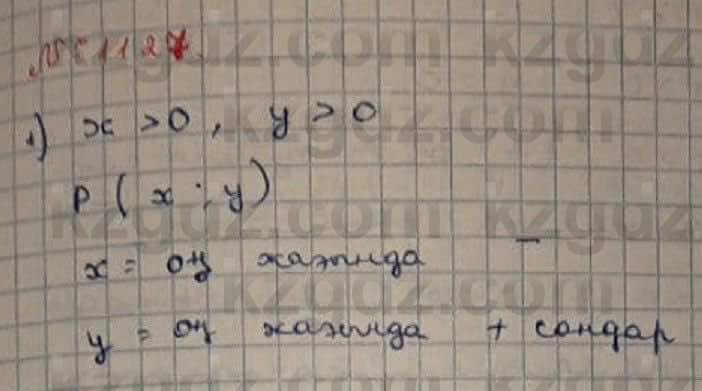 № 1127.
1) x > 0, y > 0
P (x ; y)
x = оң жағында –
y = оң жағында + сандар
kzgdz.com kzgdz.com
kzgdz.com
kzgdz.com kzgdz.com
kzgdz.com